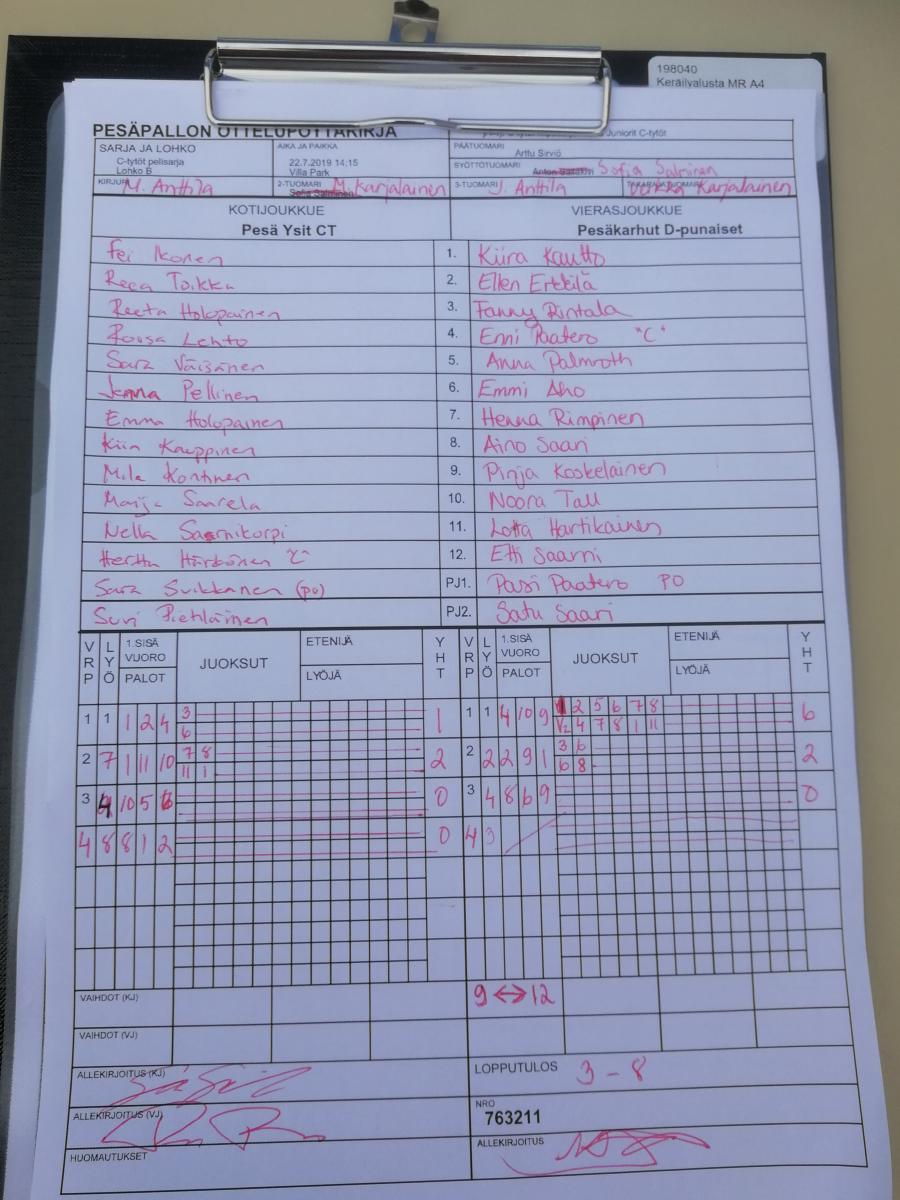 198040
Keräilyalusta MR A4
PESÄPALLON OTTELUPÖYTÄKIRJA
Juniorit C-tytöt
SARJA JA LOHKO
C-tytöt pelisarja
Lohko B
AIKA JA PAIKKA
22.7.2019 14:15
Villa Park
PÄÄTUOMARI
Arttu Sirviö
SYÖTTÖTUOMARI Sofia Salminen
KIRJURI M. Anttila
2-TUOMARI M. Karjalainen
3-TUOMARI J. Anttila
Karjalainen
KOTIJOUKKUE VIERASJOUKKUE
Pesä Ysit CT Pesäkarhut D-punaiset
Fei Ikonen 1. Kiira Kautto
Reea Toikka 2. Ellen Erkkilä
Reeta Holopainen 3. Fanny Rintala
Lehto 4. Enni Paatero "C"
Sara Väisänen 5. Anna Palmroth
Jenna Pellinen 6. Emmi Aho
Emma Holopainen 7. Henna Rimpinen
Kiia Kauppinen 8. Aino Saari
Mila Kontinen 9. Pinja Koskelainen
Maija Saarela 10. Noora Tall
Nella Saarnikorpi 11. Lotta Hartikainen
Hertta Härkönen "C" 12. Etti Saarni
Sara Suikkanen (po) PJ1. Pasi Paatero PO
Suvi Piehläinen PJ2. Satu Saari
VRP LYÖ 1.SISÄ VUORO PALOT JUOKSUT ETENIJÄ LYÖJÄ YHT VRP LYÖ 1.SISÄ VUORO PALOT JUOKSUT ETENIJÄ LYÖJÄ YHT
1 1 1 2 4 3 1 1 1 4 10 9 1 2 5 6 7 8 6
6 V2 4 7 8 1 11
2 7 1 11 10 7 8 2 2 2 2 9 1 3 6 2
11 1 6 8
3 4 10 5 6 0 3 4 8 6 9 0
4 8 8 1 2 0 4 3
VAIHDOT (KJ) 9 ↔ 12
VAIHDOT (VJ)
ALLEKIRJOITUS (KJ) LOPPUTULOS 3 - 8
ALLEKIRJOITUS (VJ) NRO
763211
HUOMAUTUKSET ALLEKIRJOITUS